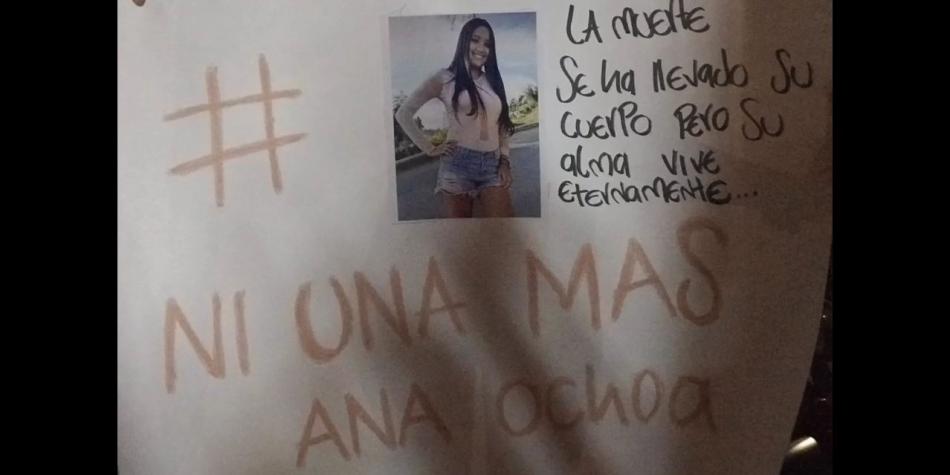 #
LA MUERTE
Se ha llevado Su
CUERPO PERO SU
alma VIVE
ETERNAMENTE...
NI UNA MAS
ANA Ochoa